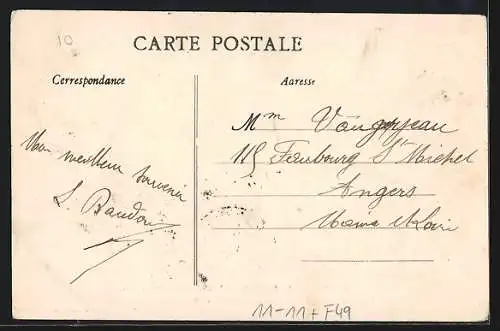 10
CARTE POSTALE
Correspondance
Adresse
Mon meilleur souvenir
L. Baudou
Mm Vaugoyeau
115 Faubourg St Michel
Angers
Maine et Loire
11-11+F49